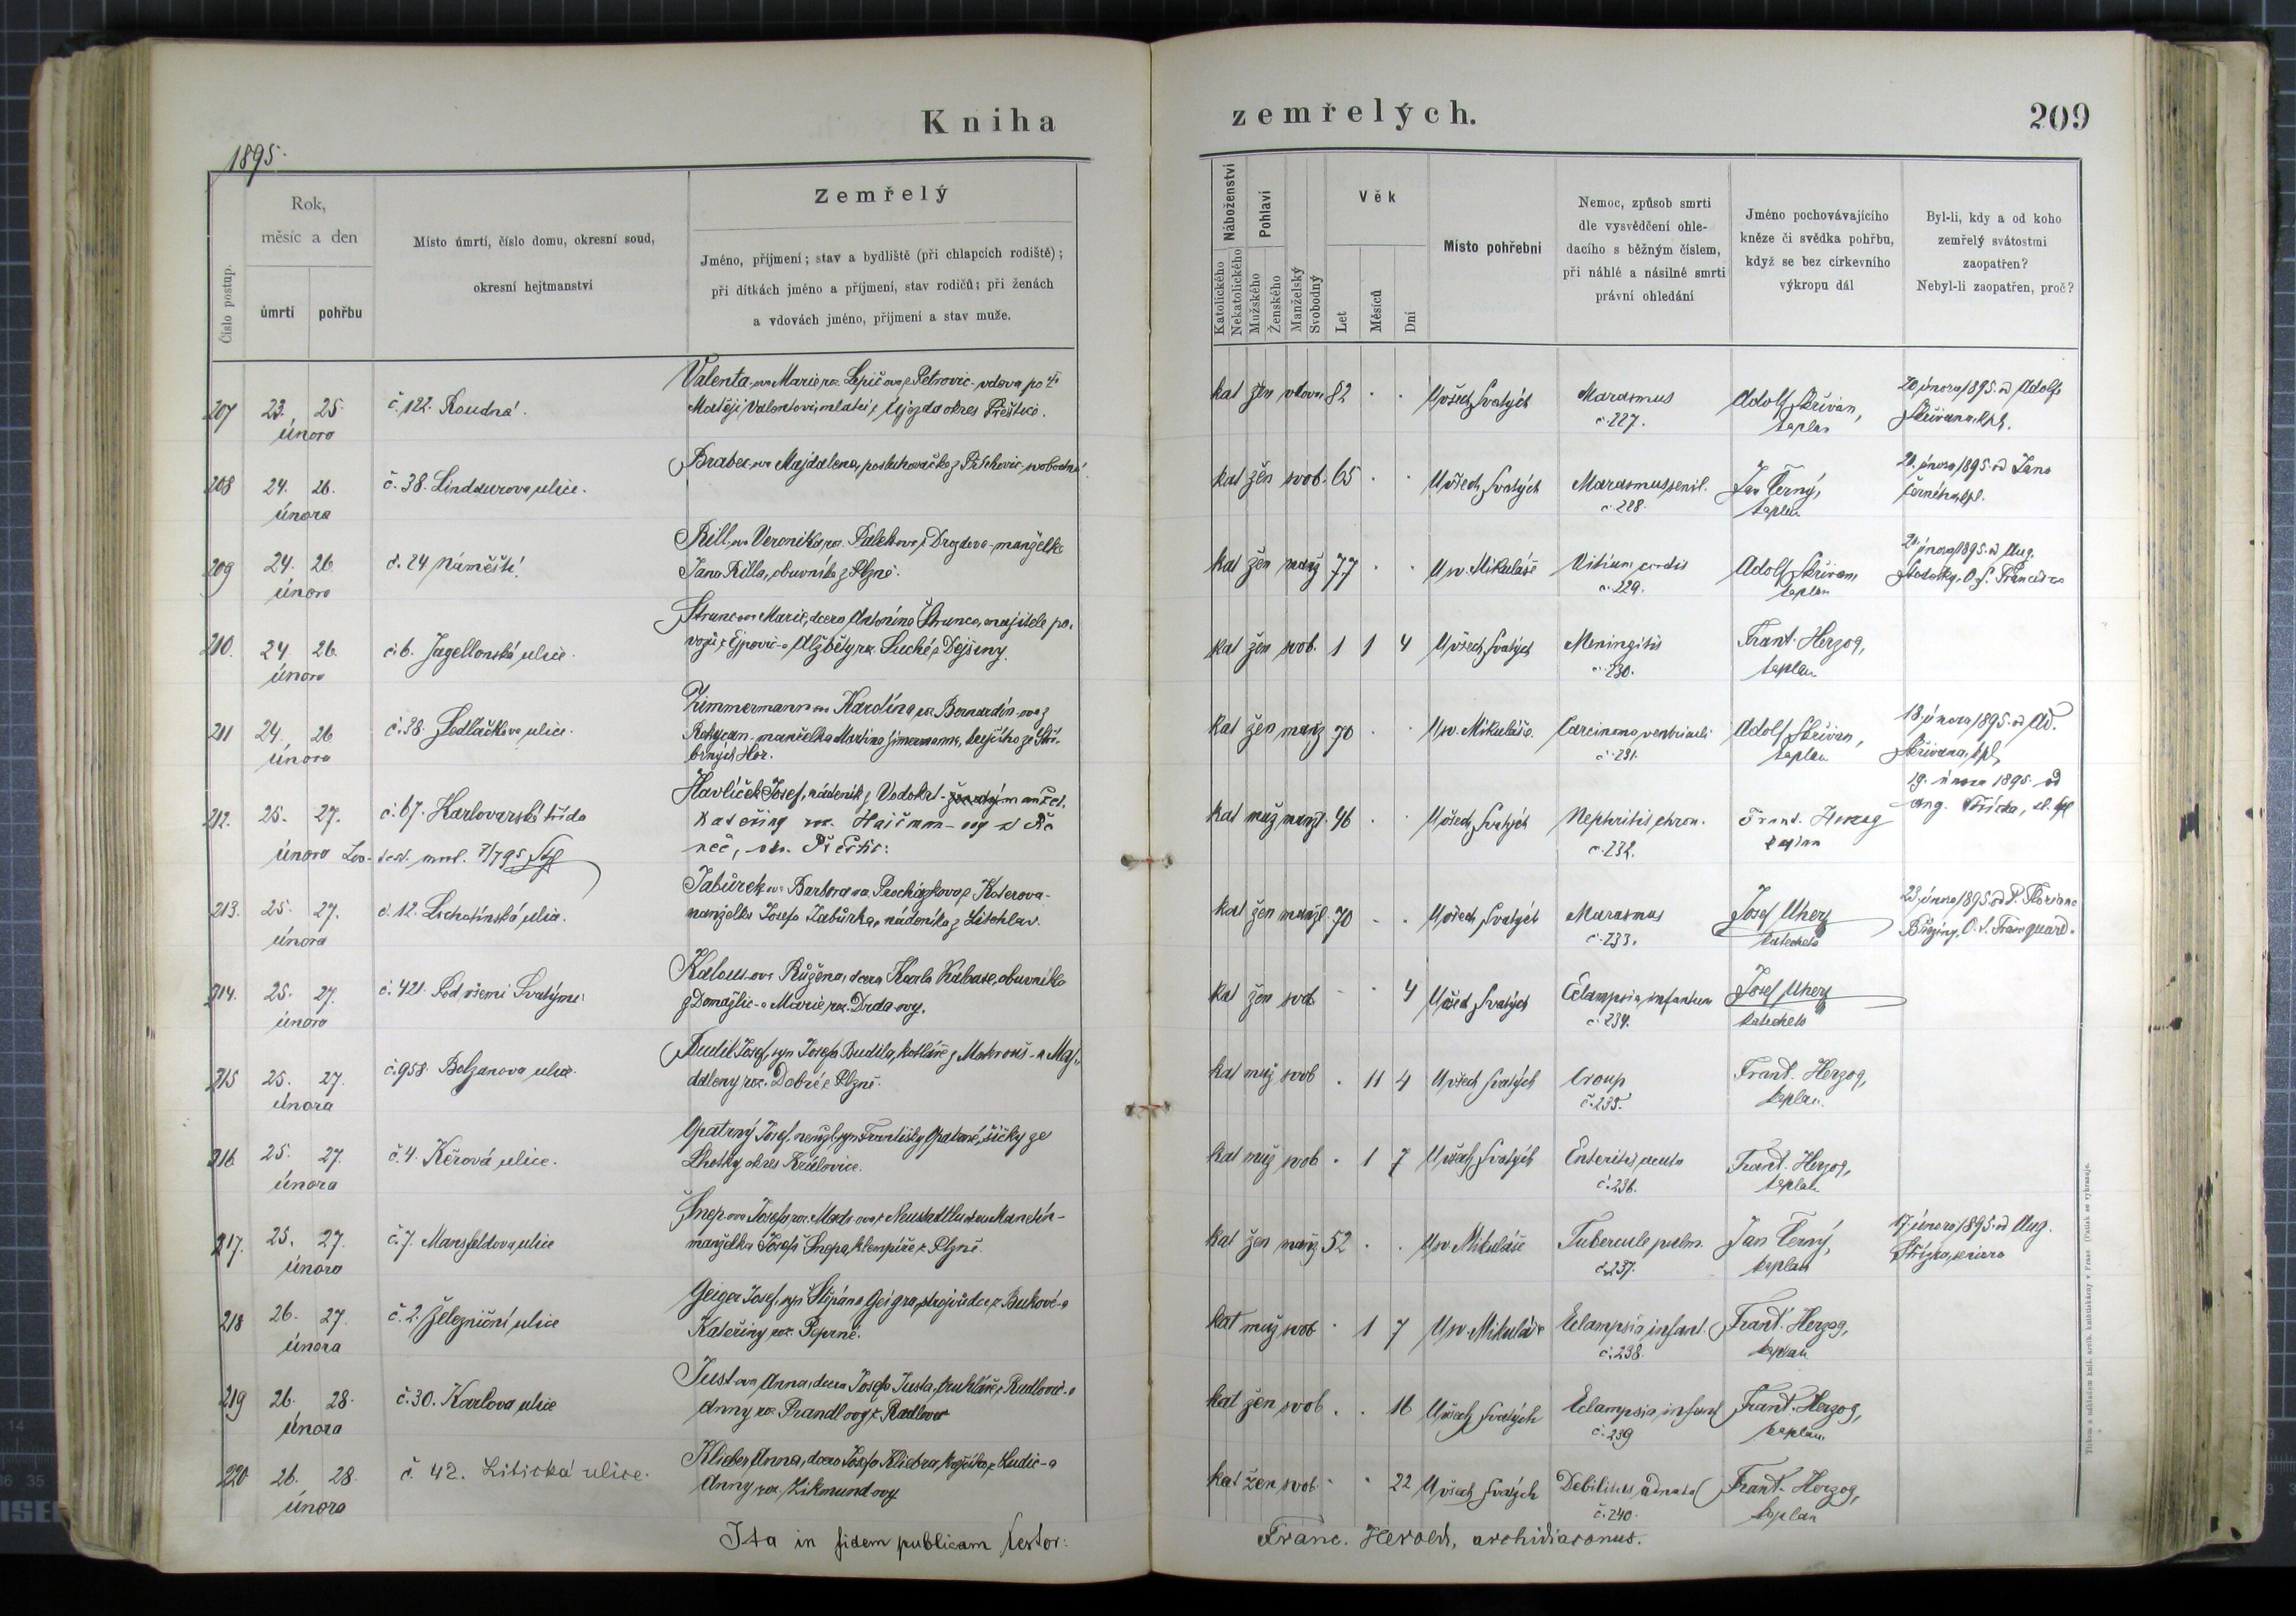 Kniha
1895.
Číslo postup.
Rok,
měsíc a den
úmrtí
pohřbu
Místo úmrtí, číslo domu, okresní soud,
okresní hejtmanství
Zemřelý
Jméno, příjmení; stav a bydliště (při chlapcích rodiště);
při dítkách jméno a příjmení, stav rodičů; při ženách
a vdovách jméno, příjmení a stav muže.
207 23. 25. č. 122. Roudná.
února
Valenta-ova Marie roz. Lepič ova z Petrovic - vdova po
Matěji Valentovi, mlatci z Újezda okres Přeštic.
208 24. 26. č. 38. Lindaurova ulice.
února
Brabec-ova Majdalena, posluhovačka z svobodná
209 24. 26. č. 24 náměstí.
února
Rill-ova Veronika roz. z Drozdova - manželka
Jana Rilla, obuvníka z Plzně.
210. 24. 26. č. 6. Jagellonská ulice.
února
Štrunc-ova Marie, dcera Antonína Štrunce, majitele po-
vozů z Ejpovic - a Alžběty roz. Suché z Dejšiny.
211 24. 26 č. 38. Sedláčkova ulice.
února
Zimmermann-ova Karolína roz. Bernardin-ova z
Rokycan - manželka Martina Zimermanna, krejčího ze Stří-
brných Hor.
212. 25. 27. č. 67. Karlovarská třída
února
Havlíček Josef, nádeník z Vodokrt - manžel
Kateřiny roz. Haišman-ovy z Ře
neč, okr. Přeštic.
213. 25. 27. č. 12. Lochotínská ulice.
února
Jabůrek-ova Barbora roz. Procházkova z Koterova -
manželka Josefa Jabůrka, nádeníka z Litohlav.
214. 25. 27. č. 421. Pod všemi Svatými
února
Kalous-ova Růžena, dcera Karla obuvníka
z Domažlic - a Marie roz. Drda-ovy.
215 25. 27. č. 958. Bolzanova ulice.
února
Budil Josef, syn Josefa Budila, kotláře z Mokrouš - a Maj-
daleny roz. Dobré z Plzně.
216 25. 27. č. 4. Kéřová ulice.
února
Opatrný Josef, nemanž. syn Františky Opatrné, šičky ze
Lhotky okres Královice.
217. 25. 27. č. 7. Mansfeldova ulice
února
Šnep-ova Josefa roz.
manželka Josefa Šnepa, klempíře z Plzně.
218 26. 27. č. 2. Železniční ulice
února
Geiger Josef, syn Štěpána Geigra, strojvůdce z Bukové - a
Kateřiny roz. Peprné.
219 26. 28. č. 30. Karlova ulice
února
Just-ova Anna, dcera Josefa Justa, truhláře z - a
Anny roz. Prandl-ovy z
220 26. 28. č. 42. Litická ulice.
února
Klieber Anna, dcera Josefa Kliebra, krejčího z Ludic - a
Anny roz. Zikmund-ovy
Ita in fidem publicam testor:
zemřelých.
209
Náboženství
Katolického
Nekatolického
Pohlaví
Mužského
Ženského
Manželský
Svobodný
Věk
Let
Měsíců
Dní
Místo pohřební
Nemoc, způsob smrti
dle vysvědčení ohle-
dacího s běžným číslem,
při náhlé a násilné smrti
právní ohledání
Jméno pochovávajícího
kněze či svědka pohřbu,
když se bez církevního
výkropu dál
Byl-li, kdy a od koho
zemřelý svátostmi
zaopatřen?
Nebyl-li zaopatřen, proč?
kat žen vdova 82 . . U všech Svatých Marasmus Adolf Skřivan, 20. února 1895. od Adolfa
č. 227. kaplan Skřivana, kpl.
kat žen svob. 65 . . U všech Svatých Marasmus senil. Jan Černý, 20. února 1895. od Jana
č. 228. kaplan Černého, kpl.
kat žen manž 77 . . U sv. Mikuláše Vitium cordis Adolf Skřivan, února 1895. od Aug.
č. 229. kaplan
kat žen svob. 1 1 4 U všech Svatých Meningitis Frant. Herzog,
č. 230. kaplan
kat žen manž 70 . . U sv. Mikuláše. Carcinoma ventriculi Adolf Skřivan, 18. února 1895. od Ad.
č. 231. kaplan Skřivana, kpl.
kat muž manžel. 46 . . U všech Svatých Nephritis chron. Frant. Herzog 19. února 1895. od
č. 232. kaplan Aug.
kat žen manžel. 70 . . U všech Svatých Marasmus Josef Uherz 23. února 1895. od P. Floriana
č. 233. katecheta
kat žen svob . . 4 U všech Svatých Eclampsia infantum Josef Uherz
č. 234. katecheta
kat muž svob . 11 4 U všech Svatých Croup Frant. Herzog,
č. 235. kaplan.
kat muž svob . 1 7 U všech Svatých Enteritis acuta Frant. Herzog,
č. 236. kaplan
kat žen manž 52 . . U sv. Mikuláše Tubercule pulm. Jan Černý, 17. února 1895. od Aug.
č. 237. kaplan
kat muž svob . 1 7 U sv. Mikuláše Eclampsia infant. Frant. Herzog,
č. 238. kaplan
kat žen svob . . 16 U všech Svatých Eclampsia infant Frant. Herzog,
č. 239 kaplan
kat žen svob . . 22 U všech Svatých Debilitas adnata Frant. Herzog,
č. 240. kaplan
Franc. Herold, archidiaconus.